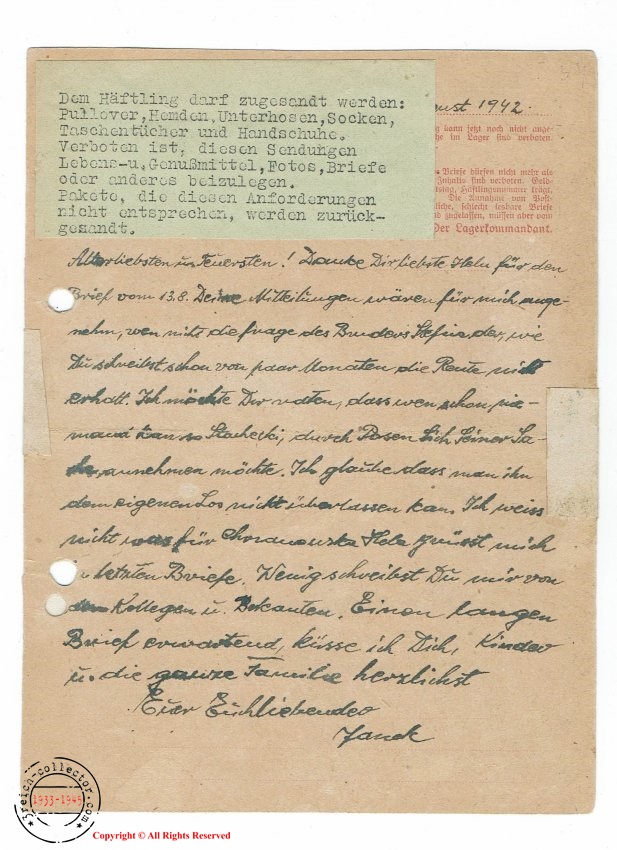 Dem Häftling darf zugesandt werden:
Pullover,Hemden,Unterhosen,Socken,
Taschentücher und Handschuhe.
Verboten ist, diesen Sendungen
Lebens-u.Genußmittel,Fotos,Briefe
oder anderes beizulegen.
Pakete, die diesen Anforderungen
nicht entsprechen, werden zurück-
gesandt.
ust 1942.
kann jetzt noch nicht ange-
he im Lager sind verboten.
Briefe dürfen nicht mehr als
Inhalts sind verboten. Geld-
tag, Häftlingsnummer trägt.
Die Annahme von Post-
liche, schlecht lesbare Briefe
zugelassen, müssen aber vom
Der Lagerkommandant.
Allerliebsten u. Teuersten! Danke Dir liebste Hela für den
Brief vom 13.8. Deine Mitteilungen wären für mich ange-
nehm, wen nicht die frage des Bruders der, wie
Du schreibst schon von paar Monaten die Rente nicht
erhält. Ich möchte Dir raten, dass wen schon nie-
mand kan so Stachecki, durch Posen sich seiner Sa-
che annehmen möchte. Ich glaube dass man ihn
dem eigenen Los nicht überlassen kan. Ich weiss
nicht was für Hela grüsst mich
letzten Briefe. Wenig schreibst Du mir von
den Kollegen u. Bekanten. Einen langen
Brief erwartend, küsse ich Dich, Kinder
u. die ganze Familie herzlichst
Euer Euchliebender
Janek
3reich-collector.com
1933-1945
Copyright © All Rights Reserved